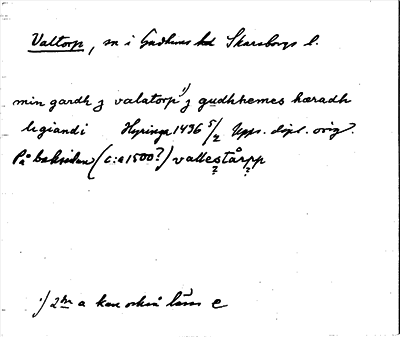 Valtorp, sn i Gudhems hd Skaraborgs l.
min gardh ȝ valatorp¹⁾ ȝ gudhhemes hæradh
legiandi Hyringa 1436 5/2 Upps. dipl. orig.
På baksidan (c:a 1500?) vallestårpp
¹⁾ 2 a kan också läsas e